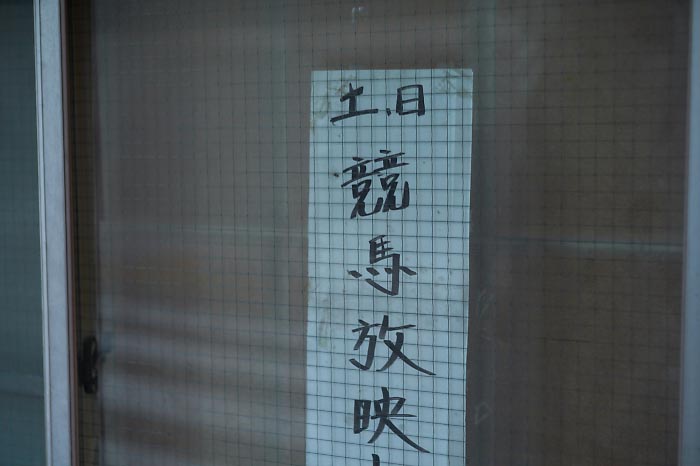 土、日
競馬放映